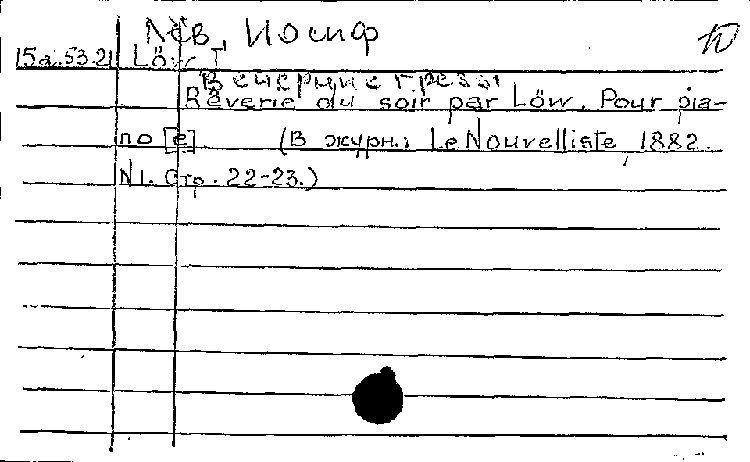 Лёв, Иосиф
15а.53.21 Löw, I
Вечерние грезы
Rêverie du soir par Löw. Pour pia-
no [e] (В журн.: Le Nouvelliste, 1882.
N1. Стр. 22-23.)